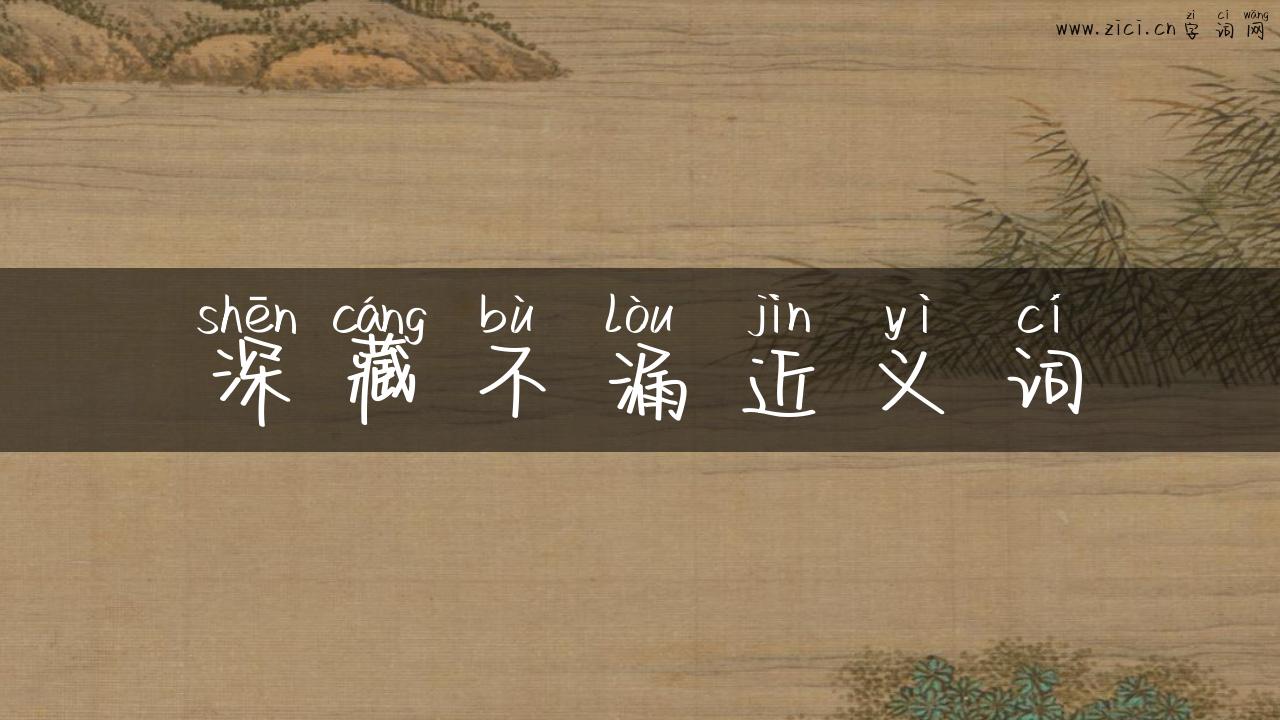 zì cí wǎng
www.zici.cn 字词网
shēn cáng bù lòu jìn yì cí
深藏不漏近义词